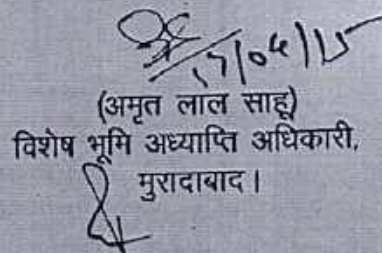 17/04/15
(अमृत लाल साहू)
विशेष भूमि अध्याप्ति अधिकारी,
मुरादाबाद।